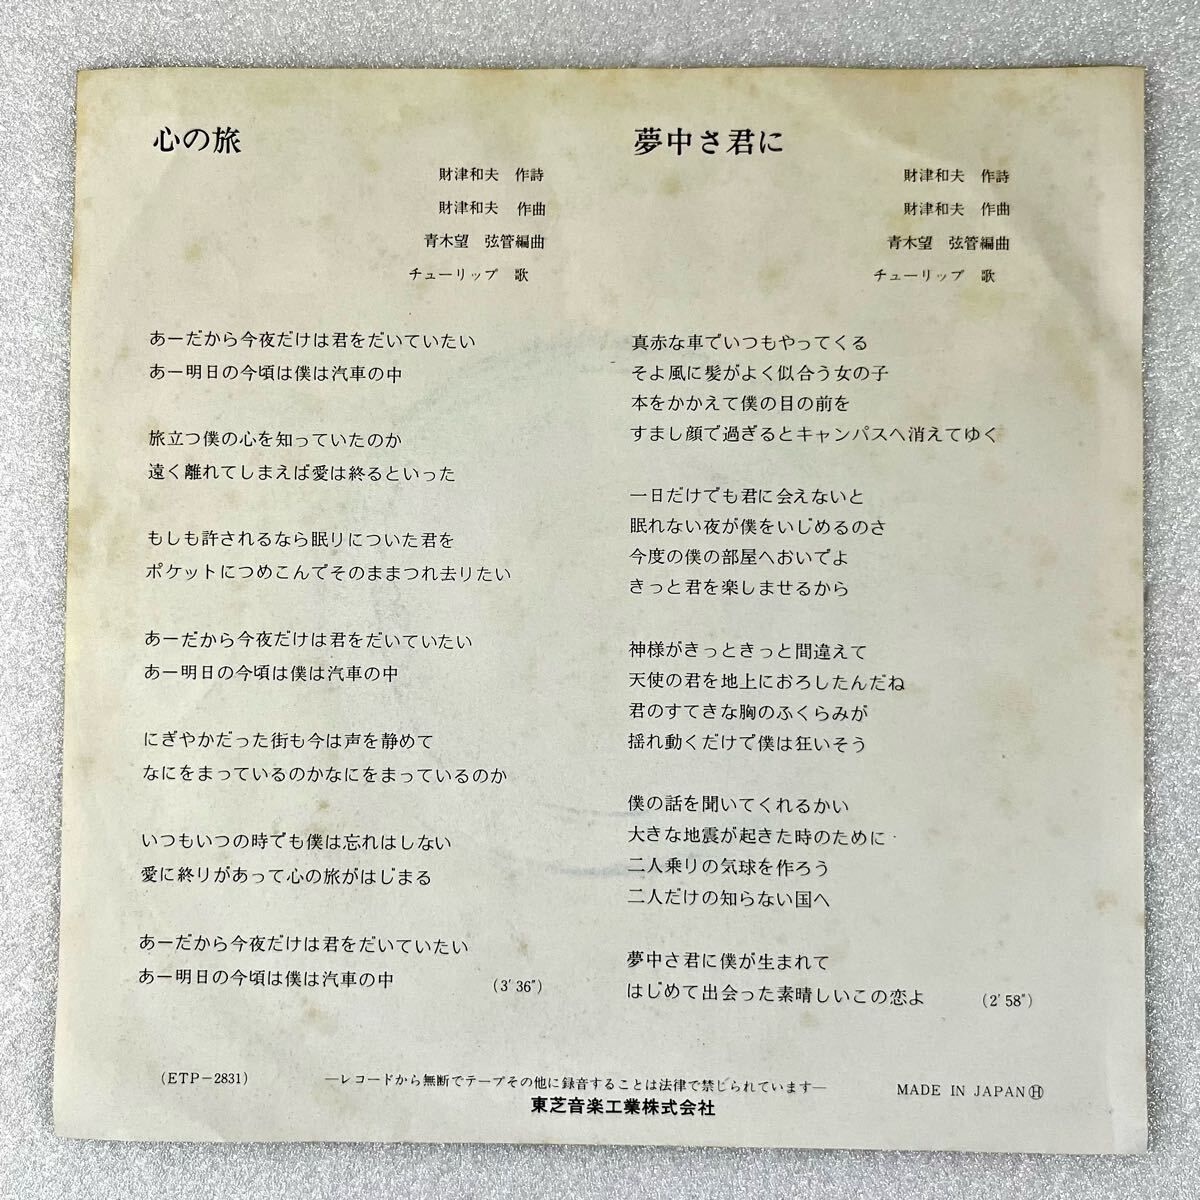 心の旅
財津和夫 作詩
財津和夫 作曲
青木望 弦管編曲
チューリップ 歌
あーだから今夜だけは君をだいていたい
あー明日の今頃は僕は汽車の中
旅立つ僕の心を知っていたのか
遠く離れてしまえば愛は終るといった
もしも許されるなら眠りについた君を
ポケットにつめこんでそのままつれ去りたい
あーだから今夜だけは君をだいていたい
あー明日の今頃は僕は汽車の中
にぎやかだった街も今は声を静めて
なにをまっているのかなにをまっているのか
いつもいつの時でも僕は忘れはしない
愛に終りがあって心の旅がはじまる
あーだから今夜だけは君をだいていたい
あー明日の今頃は僕は汽車の中 (3′36″)
夢中さ君に
財津和夫 作詩
財津和夫 作曲
青木望 弦管編曲
チューリップ 歌
真赤な車でいつもやってくる
そよ風に髪がよく似合う女の子
本をかかえて僕の目の前を
すまし顔で過ぎるとキャンパスへ消えてゆく
一日だけでも君に会えないと
眠れない夜が僕をいじめるのさ
今度の僕の部屋へおいでよ
きっと君を楽しませるから
神様がきっときっと間違えて
天使の君を地上におろしたんだね
君のすてきな胸のふくらみが
揺れ動くだけで僕は狂いそう
僕の話を聞いてくれるかい
大きな地震が起きた時のために
二人乗りの気球を作ろう
二人だけの知らない国へ
夢中さ君に僕が生まれて
はじめて出会った素晴しいこの恋よ (2′58″)
(ETP-2831)
—レコードから無断でテープその他に録音することは法律で禁じられています—
東芝音楽工業株式会社
MADE IN JAPAN Ⓗ